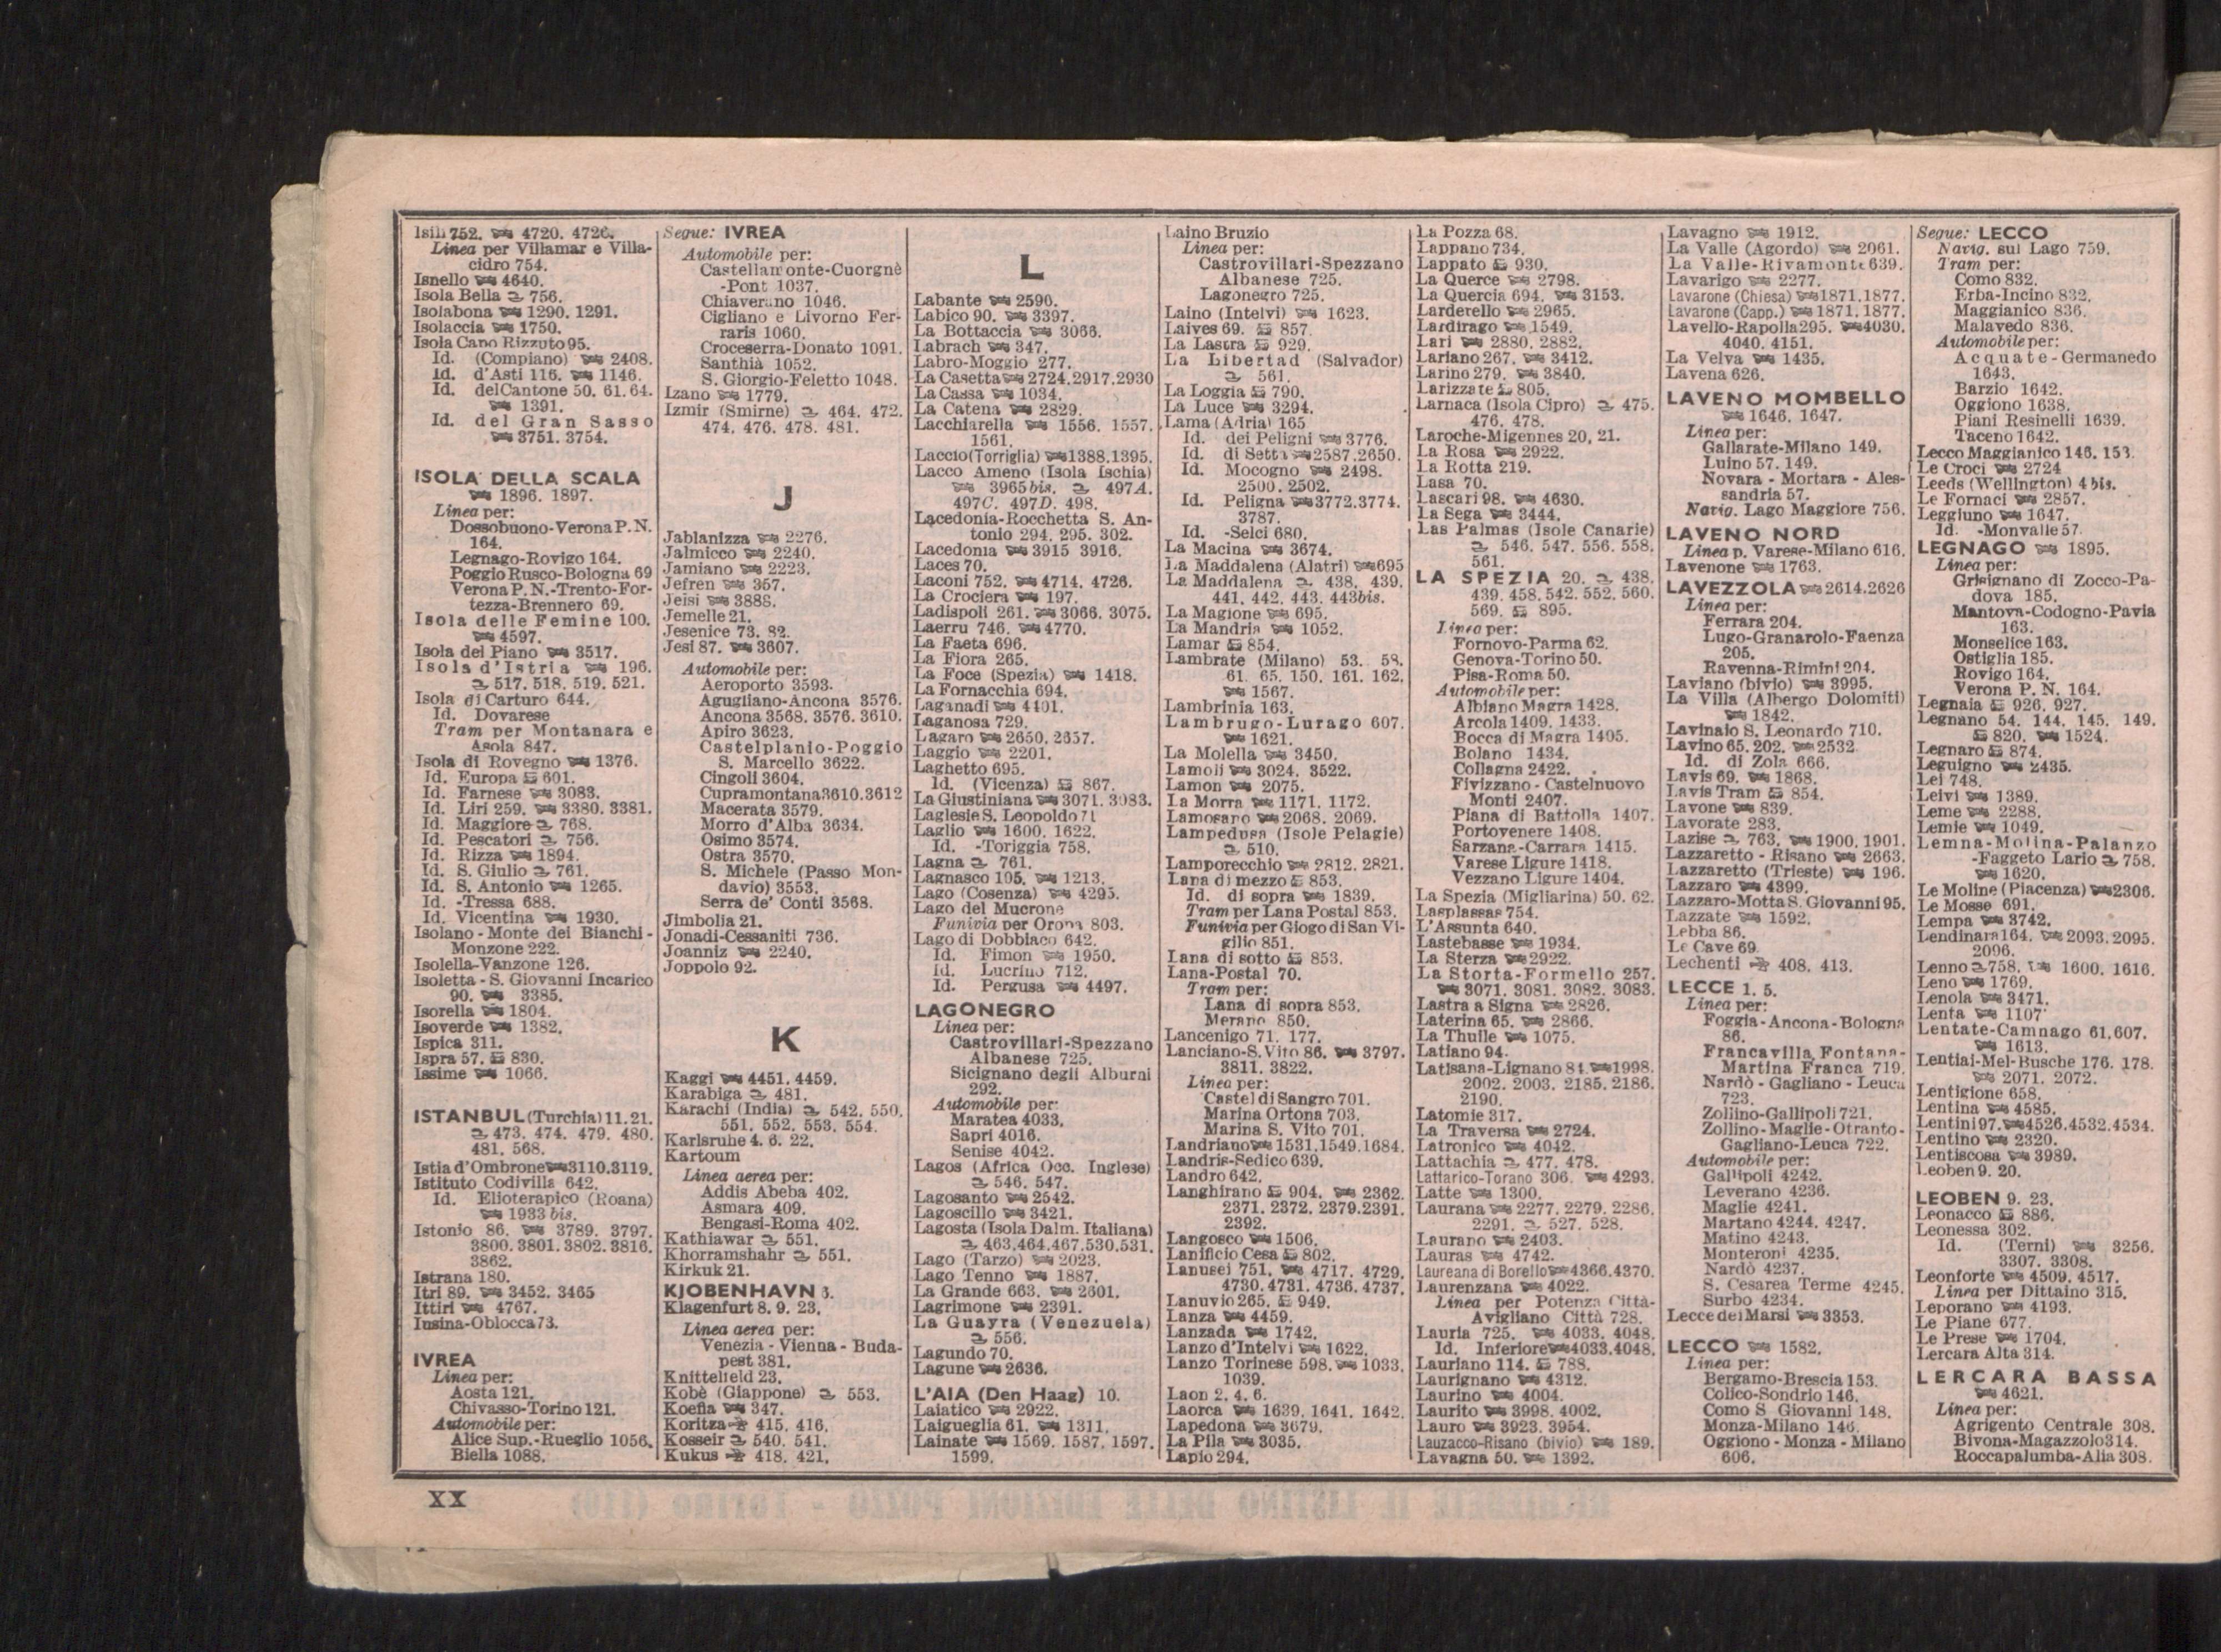 Isili 752. 4720. 4726.
Linea per Villamar e Villa-
cidro 754.
Isnello 4640.
Isola Bella 756.
Isolabona 1290. 1291.
Isolaccia 1750.
Isola Capo Rizzuto 95.
Id. (Compiano) 2408.
Id. d'Asti 116. 1146.
Id. del Cantone 50. 61. 64.
1391.
Id. del Gran Sasso
3751. 3754.
ISOLA DELLA SCALA
1896. 1897.
Linea per:
Dossobuono-Verona P. N.
164.
Legnago-Rovigo 164.
Poggio Rusco-Bologna 69
Verona P. N.-Trento-For-
tezza-Brennero 69.
Isola delle Femine 100.
4597.
Isola del Piano 3517.
Isola d'Istria 196.
517. 518. 519. 521.
Isola di Carturo 644.
Id. Dovarese
Tram per Montanara e
Asola 847.
Isola di Rovegno 1376.
Id. Europa 601.
Id. Farnese 3083.
Id. Liri 259. 3380. 3381.
Id. Maggiore 768.
Id. Pescatori 756.
Id. Rizza 1894.
Id. S. Giulio 761.
Id. S. Antonio 1265.
Id. -Tressa 688.
Id. Vicentina 1930.
Isolano - Monte dei Bianchi -
Monzone 222.
Isolella-Vanzone 126.
Isoletta - S. Giovanni Incarico
90. 3385.
Isorella 1804.
Isoverde 1382.
Ispica 311.
Ispra 57. 830.
Issime 1066.
ISTANBUL (Turchia) 11. 21.
473. 474. 479. 480.
481. 568.
Istia d'Ombrone 3110. 3119.
Istituto Codivilla 642.
Id. Elioterapico (Roana)
1933 bis.
Istonio 86. 3789. 3797.
3800. 3801. 3802. 3816.
3862.
Istrana 180.
Itri 89. 3452. 3465
Ittiri 4767.
Iusina-Oblocca 73.
IVREA
Linea per:
Aosta 121.
Chivasso-Torino 121.
Automobile per:
Alice Sup.-Rueglio 1056.
Biella 1088.
Segue: IVREA
Automobile per:
Castellamonte-Cuorgnè
-Pont 1037.
Chiaverano 1046.
Cigliano e Livorno Fer-
raris 1060.
Croceserra-Donato 1091.
Santhià 1052.
S. Giorgio-Feletto 1048.
Izano 1779.
Izmir (Smirne) 464. 472.
474. 476. 478. 481.
J
Jablanizza 2276.
Jalmicco 2240.
Jamiano 2223.
Jefren 357.
Jeisi 3888.
Jemelle 21.
Jesenice 73. 82.
Jesi 87. 3607.
Automobile per:
Aeroporto 3593.
Agugliano-Ancona 3576.
Ancona 3568. 3576. 3610.
Apiro 3623.
Castelplanio-Poggio
S. Marcello 3622.
Cingoli 3604.
Cupramontana 3610. 3612
Macerata 3579.
Morro d'Alba 3634.
Osimo 3574.
Ostra 3570.
S. Michele (Passo Mon-
davio) 3553.
Serra de' Conti 3568.
Jimbolia 21.
Jonadi-Cessaniti 736.
Joanniz 2240.
Joppolo 92.
K
Kaggi 4451. 4459.
Karabiga 481.
Karachi (India) 542. 550.
551. 552. 553. 554.
Karlsruhe 4. 6. 22.
Kartoum
Linea aerea per:
Addis Abeba 402.
Asmara 409.
Bengasi-Roma 402.
Kathiawar 551.
Khorramshahr 551.
Kirkuk 21.
KJOBENHAVN 3.
Klagenfurt 8. 9. 23.
Linea aerea per:
Venezia - Vienna - Buda-
pest 381.
Knittelfeld 23.
Kobè (Giappone) 553.
Koefia 347.
Koritza 415. 416.
Kosseir 540. 541.
Kukus 418. 421.
L
Labante 2590.
Labico 90. 3397.
La Bottaccia 3066.
Labrach 347.
Labro-Moggio 277.
La Casetta 2724. 2917. 2930
La Cassa 1034.
La Catena 2829.
Lacchiarella 1556. 1557.
1561.
Laccio (Torriglia) 1388. 1395.
Lacco Ameno (Isola Ischia)
3965 bis. 497A.
497C. 497D. 498.
Lacedonia-Rocchetta S. An-
tonio 294. 295. 302.
Lacedonia 3915 3916.
Laces 70.
Laconi 752. 4714. 4726.
La Crociera 197.
Ladispoli 261. 3066. 3075.
Laerru 746. 4770.
La Faeta 696.
La Fiora 265.
La Foce (Spezia) 1418.
La Fornacchia 694.
Laganadi 4401.
Laganosa 729.
Lagaro 2650. 2657.
Laggio 2201.
Laghetto 695.
Id. (Vicenza) 867.
La Giustiniana 3071. 3083.
Laglesie S. Leopoldo 71
Laglio 1600. 1622.
Id. -Toriggia 758.
Lagna 761.
Lagnasco 105. 1213.
Lago (Cosenza) 4295.
Lago del Mucrone
Funivia per Oropa 803.
Lago di Dobbiaco 642.
Id. Fimon 1950.
Id. Lucrino 712.
Id. Pergusa 4497.
LAGONEGRO
Linea per:
Castrovillari-Spezzano
Albanese 725.
Sicignano degli Alburni
292.
Automobile per:
Maratea 4033.
Sapri 4016.
Senise 4042.
Lagos (Africa Occ. Inglese)
546. 547.
Lagosanto 2542.
Lagoscillo 3421.
Lagosta (Isola Dalm. Italiana)
463. 464. 467. 530. 531.
Lago (Tarzo) 2023.
Lago Tenno 1887.
La Grande 663. 2601.
Lagrimone 2391.
La Guayra (Venezuela)
556.
Lagundo 70.
Lagune 2636.
L'AIA (Den Haag) 10.
Laiatico 2922.
Laigueglia 61. 1311.
Lainate 1569. 1587. 1597.
1599.
Laino Bruzio
Linea per:
Castrovillari-Spezzano
Albanese 725.
Lagonegro 725.
Laino (Intelvi) 1623.
Laives 69. 857.
La Lastra 929.
La Libertad (Salvador)
561.
La Loggia 790.
La Luce 3294.
Lama (Adria) 165
Id. dei Peligni 3776.
Id. di Setta 2587. 2650.
Id. Mocogno 2498.
2500. 2502.
Id. Peligna 3772. 3774.
3787.
Id. -Selci 680.
La Macina 3674.
La Maddalena (Alatri) 695
La Maddalena 438. 439.
441. 442. 443. 443bis.
La Magione 695.
La Mandria 1052.
Lamar 854.
Lambrate (Milano) 53. 58.
61. 65. 150. 161. 162.
1567.
Lambrinia 163.
Lambrugo-Lurago 607.
1621.
La Molella 3450.
Lamoli 3024. 3522.
Lamon 2075.
La Morra 1171. 1172.
Lamosano 2068. 2069.
Lampedusa (Isole Pelagie)
510.
Lamporecchio 2812. 2821.
Lana di mezzo 853.
Id. di sopra 1839.
Tram per Lana Postal 853.
Funivia per Giogo di San Vi-
gilio 851.
Lana di sotto 853.
Lana-Postal 70.
Tram per:
Lana di sopra 853.
Merano 850.
Lancenigo 71. 177.
Lanciano-S. Vito 86. 3797.
3811. 3822.
Linea per:
Castel di Sangro 701.
Marina Ortona 703.
Marina S. Vito 701.
Landriano 1531. 1549. 1684.
Landris-Sedico 639.
Landro 642.
Langhirano 904. 2362.
2371. 2372. 2379. 2391.
2392.
Langosco 1506.
Lanificio Cesa 802.
Lanusei 751. 4717. 4729.
4730. 4731. 4736. 4737.
Lanuvio 265. 949.
Lanza 4459.
Lanzada 1742.
Lanzo d'Intelvi 1622.
Lanzo Torinese 598. 1033.
1039.
Laon 2. 4. 6.
Laorca 1639. 1641. 1642.
Lapedona 3679.
La Pila 3035.
Lapio 294.
La Pozza 68.
Lappano 734.
Lappato 930.
La Querce 2798.
La Quercia 694. 3153.
Larderello 2965.
Lardirago 1549.
Lari 2880. 2882.
Lariano 267. 3412.
Larino 279. 3840.
Larizzate 805.
Larnaca (Isola Cipro) 475.
476. 478.
Laroche-Migennes 20. 21.
La Rosa 2922.
La Rotta 219.
Lasa 70.
Lascari 98. 4630.
La Sega 3444.
Las Palmas (Isole Canarie)
546. 547. 556. 558.
561.
LA SPEZIA 20. 438.
439. 458. 542. 552. 560.
569. 895.
Linea per:
Fornovo-Parma 62.
Genova-Torino 50.
Pisa-Roma 50.
Automobile per:
Albiano Magra 1428.
Arcola 1409. 1433.
Bocca di Magra 1405.
Bolano 1434.
Collagna 2422.
Fivizzano - Castelnuovo
Monti 2407.
Piana di Battolla 1407.
Portovenere 1408.
Sarzana-Carrara 1415.
Varese Ligure 1418.
Vezzano Ligure 1404.
La Spezia (Migliarina) 50. 62.
Lasplassas 754.
L'Assunta 640.
Lastebasse 1934.
La Sterza 2922.
La Storta-Formello 257.
3071. 3081. 3082. 3083.
Lastra a Signa 2826.
Laterina 65. 2866.
La Thuile 1075.
Latiano 94.
Latisana-Lignano 81. 1998.
2002. 2003. 2185. 2186.
2190.
Latomie 317.
La Traversa 2724.
Latronico 4042.
Lattachia 477. 478.
Lattarico-Torano 306. 4293.
Latte 1300.
Laurana 2277. 2279. 2286.
2291. 527. 528.
Laurano 2403.
Lauras 4742.
Laureana di Borello 4366. 4370.
Laurenzana 4022.
Linea per Potenza Città-
Avigliano Città 728.
Lauria 725. 4033. 4048.
Id. Inferiore 4033. 4048.
Lauriano 114. 788.
Laurignano 4312.
Laurino 4004.
Laurito 3998. 4002.
Lauro 3923. 3954.
Lauzacco-Risano (bivio) 189.
Lavagna 50. 1392.
Lavagno 1912.
La Valle (Agordo) 2061.
La Valle-Rivamonte 639.
Lavarigo 2277.
Lavarone (Chiesa) 1871. 1877.
Lavarone (Capp.) 1871. 1877.
Lavello-Rapolla 295. 4030.
4040. 4151.
La Velva 1435.
Lavena 626.
LAVENO MOMBELLO
1646. 1647.
Linea per:
Gallarate-Milano 149.
Luino 57. 149.
Novara - Mortara - Ales-
sandria 57.
Navig. Lago Maggiore 756.
LAVENO NORD
Linea p. Varese-Milano 616.
Lavenone 1763.
LAVEZZOLA 2614. 2626
Linea per:
Ferrara 204.
Lugo-Granarolo-Faenza
205.
Ravenna-Rimini 204.
Laviano (bivio) 3995.
La Villa (Albergo Dolomiti)
1842.
Lavinaio S. Leonardo 710.
Lavino 65. 202. 2532
Id. di Zola 666.
Lavis 69. 1868.
Lavis Tram 854.
Lavone 839.
Lavorate 283.
Lazise 763. 1900. 1901.
Lazzaretto - Risano 2663.
Lazzaretto (Trieste) 196.
Lazzaro 4399.
Lazzaro-Motta S. Giovanni 95.
Lazzate 1592.
Lebba 86.
Le Cave 69.
Lechenti 408. 413.
LECCE 1. 5.
Linea per:
Foggia-Ancona-Bologna
86.
Francavilla Fontana-
Martina Franca 719.
Nardò - Gagliano - Leuca
723.
Zollino-Gallipoli 721.
Zollino-Maglie-Otranto-
Gagliano-Leuca 722.
Automobile per:
Gallipoli 4242.
Leverano 4236.
Maglie 4241.
Martano 4244. 4247.
Matino 4243.
Monteroni 4235.
Nardò 4237.
S. Cesarea Terme 4245.
Surbo 4234.
Lecce dei Marsi 3353.
LECCO 1582.
Linea per:
Bergamo-Brescia 153.
Colico-Sondrio 146.
Como S Giovanni 148.
Monza-Milano 146.
Oggiono - Monza - Milano
606.
Segue: LECCO
Navig. sul Lago 759.
Tram per:
Como 832.
Erba-Incino 832.
Maggianico 836.
Malavedo 836.
Automobile per:
Acquate-Germanedo
1643.
Barzio 1642.
Oggiono 1638.
Piani Resinelli 1639.
Taceno 1642.
Lecco Maggianico 146. 153.
Le Croci 2724
Leeds (Wellington) 4 bis.
Le Fornaci 2857.
Leggiuno 1647.
Id. -Monvalle 57.
LEGNAGO 1895.
Linea per:
Grisignano di Zocco-Pa-
dova 185.
Mantova-Codogno-Pavia
163.
Monselice 163.
Ostiglia 185.
Rovigo 164.
Verona P. N. 164.
Legnaia 926. 927.
Legnano 54. 144. 145. 149.
820. 1524.
Legnaro 874.
Leguigno 2435.
Lei 748.
Leivi 1389.
Leme 2288.
Lemie 1049.
Lemna-Molina-Palanzo
-Faggeto Lario 758.
1620.
Le Moline (Piacenza) 2306.
Le Mosse 691.
Lempa 3742.
Lendinara 164. 2093. 2095.
2096.
Lenno 758. 1600. 1616.
Leno 1769.
Lenola 3471.
Lenta 1107
Lentate-Camnago 61. 607.
1613.
Lentiai-Mel-Busche 176. 178.
2071. 2072.
Lentigione 658.
Lentina 4585.
Lentini 97. 4526. 4532. 4534.
Lentino 2320.
Lentiscosa 3989.
Leoben 9. 20.
LEOBEN 9. 23.
Leonacco 886.
Leonessa 302.
Id. (Terni) 3256.
3307. 3308.
Leonforte 4509. 4517.
Linea per Dittaino 315.
Leporano 4193.
Le Piane 677.
Le Prese 1704.
Lercara Alta 314.
LERCARA BASSA
4621.
Linea per:
Agrigento Centrale 308.
Bivona-Magazzolo 314.
Roccapalumba-Alia 308.
XX